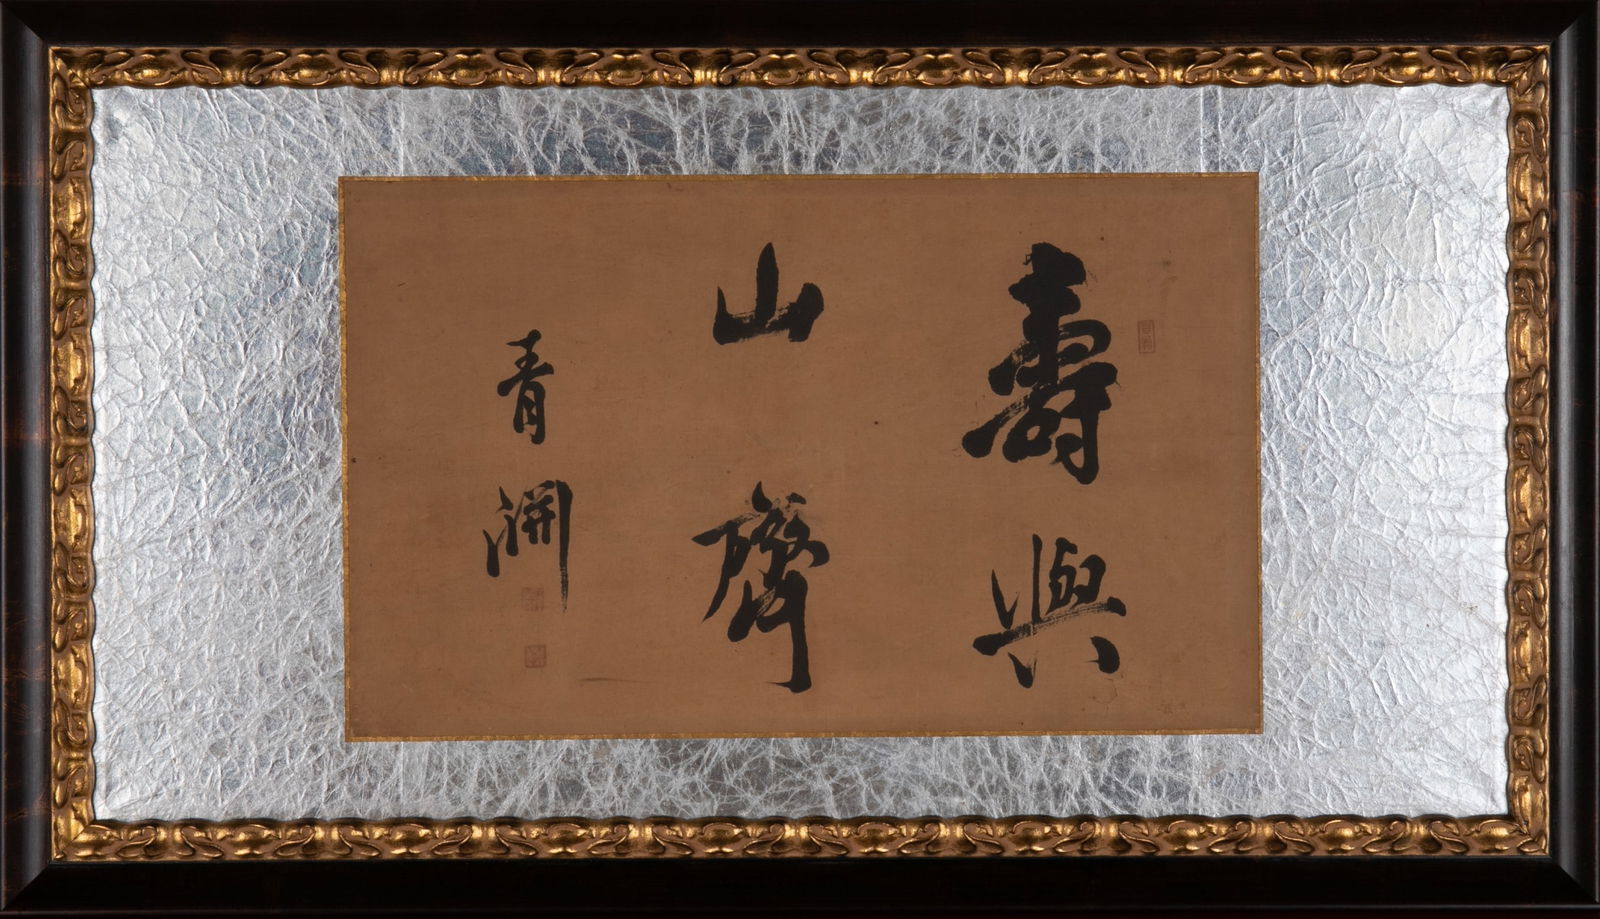 壽與
山齊
青淵